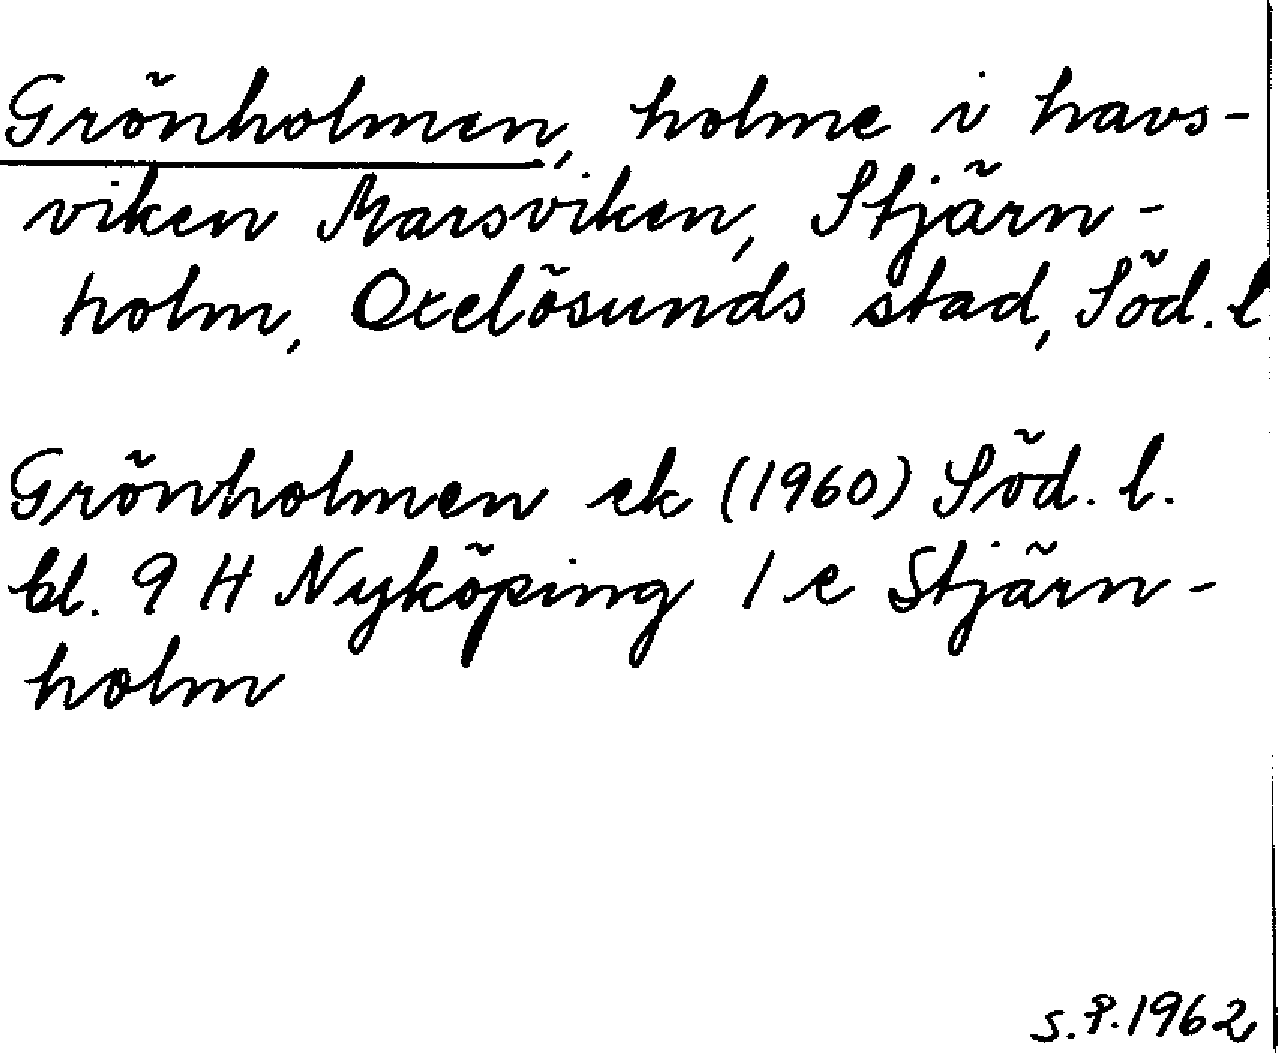 Grönholmen, holme i havs-
viken Marsviken, Stjärn-
holm, Oxelösunds stad, Söd. l
Grönholmen ek (1960) Söd. l.
bl. 9 H Nyköping 1 e Stjärn-
holm
S.P. 1962